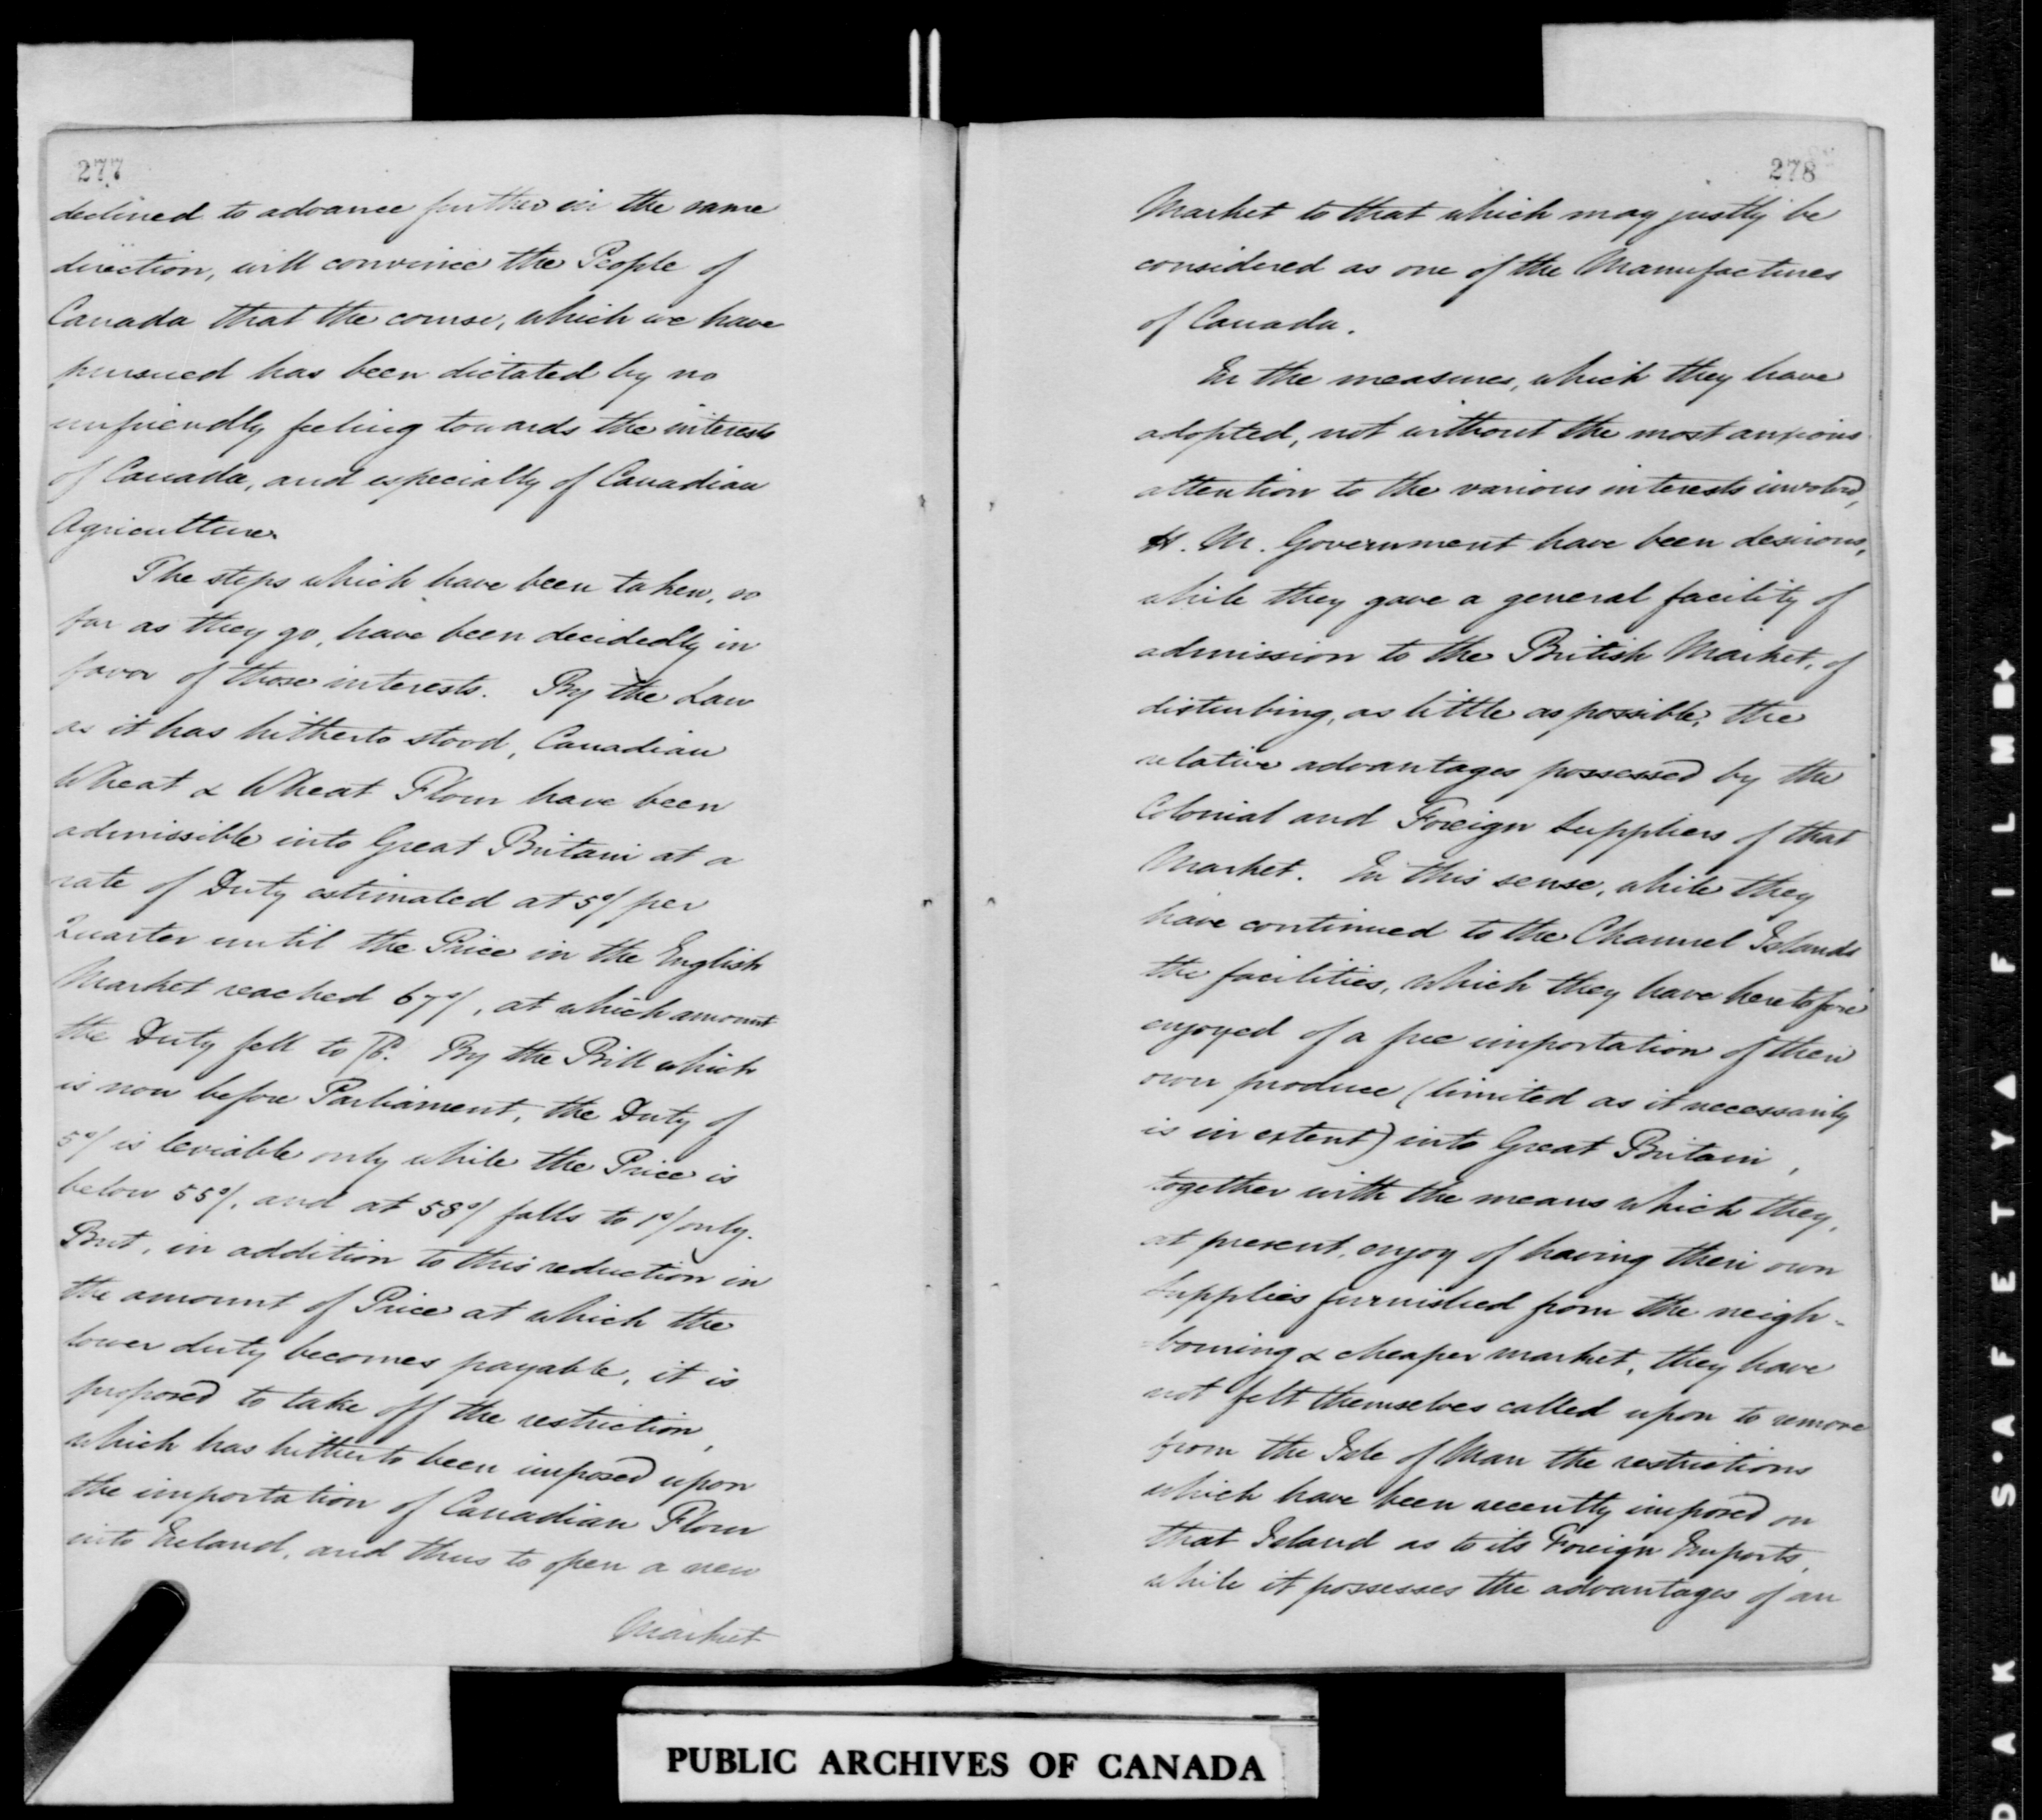 277
declined to advance further in the same
direction, will convince the People of
Canada that the course, which we have
pursued has been dictated by no
unfriendly feeling towards the interests
of Canada, and especially of Canadian
Agriculture.
The steps which have been taken, so
far as they go, have been decidedly in
favor of those interests. By the Law
as it has hitherto stood, Canadian
Wheat & Wheat Flour have been
admissible into Great Britain at a
rate of Duty estimated at 5s/ per
Quarter until the Price in the English
Market reached 67s/, at which amount
the Duty fell to /6d. By the Bill which
is now before Parliament, the Duty of
5s/ is leviable only while the Price is
below 55s/, and at 58s/ falls to 1s/ only.
But, in addition to this reduction in
the amount of Price at which the
lower duty becomes payable, it is
proposed to take off the restriction,
which has hitherto been imposed upon
the importation of Canadian Flour
into Ireland, and thus to open a new
Market
278
Market to that which may justly be
considered as one of the Manufactures
of Canada.
In the measures, which they have
adopted, not without the most anxious
attention to the various interests involved,
H. M. Government have been desirous,
while they gave a general facility of
admission to the British Market, of
disturbing, as little as possible, the
relative advantages possessed by the
Colonial and Foreign Suppliers of that
Market. In this sense, while they
have continued to the Channel Islands
the facilities, which they have heretofore
enjoyed of a free importation of their
own produce (limited as it necessarily
is in extent) into Great Britain,
together with the means which they,
at present, enjoy of having their own
Supplies furnished from the neigh-
-bouring & cheaper market, they have
not felt themselves called upon to remove
from the Isle of Man the restrictions
which have been recently imposed on
that Island as to its Foreign Imports,
while it possesses the advantages of an
PUBLIC ARCHIVES OF CANADA
D A K S'A F E T Y ▲ F I L M